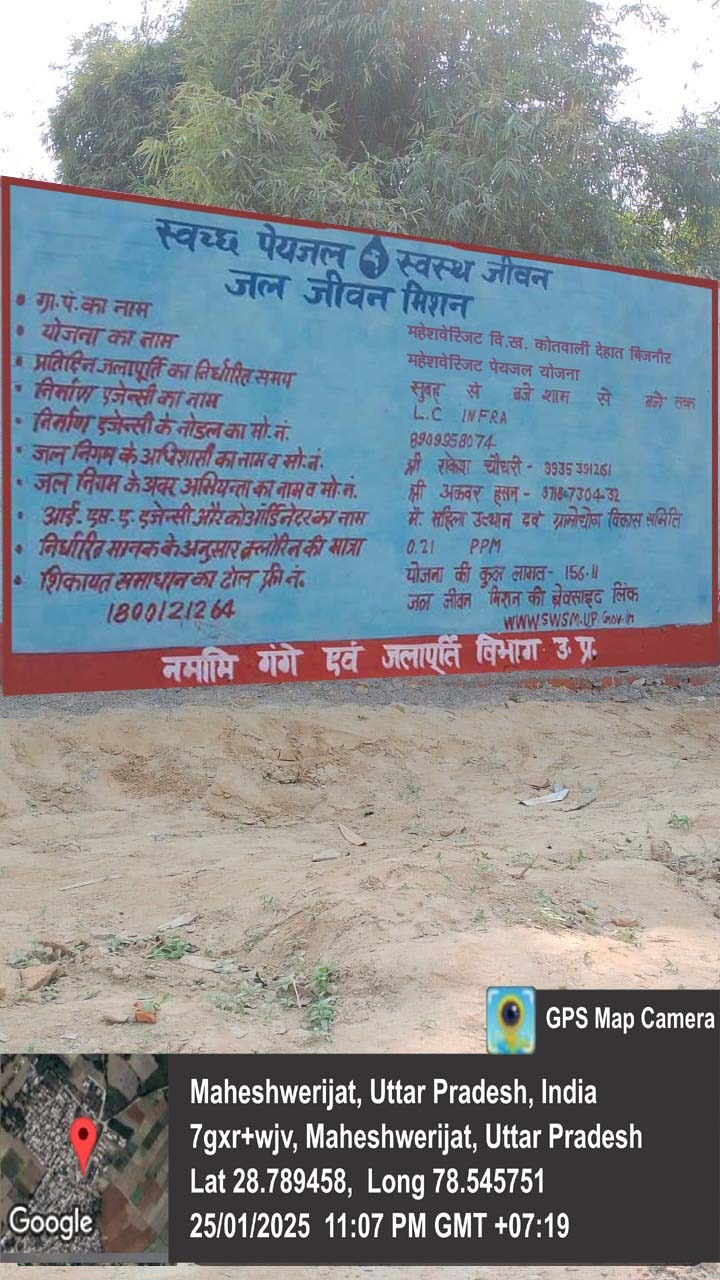 स्वच्छ पेयजल स्वस्थ जीवन
जल जीवन मिशन
ग्रा.पं.का नाम
महेशवेरिजट वि.ख. कोतवाली देहात बिजनौर
योजना का नाम
महेशवेरिजट पेयजल योजना
प्रतिदिन जलापूर्ति का निर्धारित समय
सुबह से बजे शाम से बजे तक
निर्माण एजेन्सी का नाम
L.C INFRA
निर्माण एजेन्सी के नोडल का मो.नं.
8909958074
जल निगम के अधिशासी का नाम व मो.नं.
श्री राकेश चौधरी - 9935391261
जल निगम के अवर अभियन्ता का नाम व मो.नं.
श्री अकबर हसन -
आई.एस.ए.एजेन्सी और कोऑर्डिनेटर का नाम
मै. महिला उत्थान एवं ग्रामोद्योग विकास समिति
निर्धारित मानक के अनुसार क्लोरिन की मात्रा
0.21 PPM
शिकायत समाधान का टोल फ्री नं.
1800121264
योजना की कुल लागत- 156.11
जल जीवन मिशन की बेवसाइट लिंक
WWW.SWSM.UP.Gov.in
नमामि गंगे एवं जलापूर्ति विभाग उ.प्र.
GPS Map Camera
Maheshwerijat, Uttar Pradesh, India
7gxr+wjv, Maheshwerijat, Uttar Pradesh
Lat 28.789458, Long 78.545751
25/01/2025 11:07 PM GMT +07:19
Google